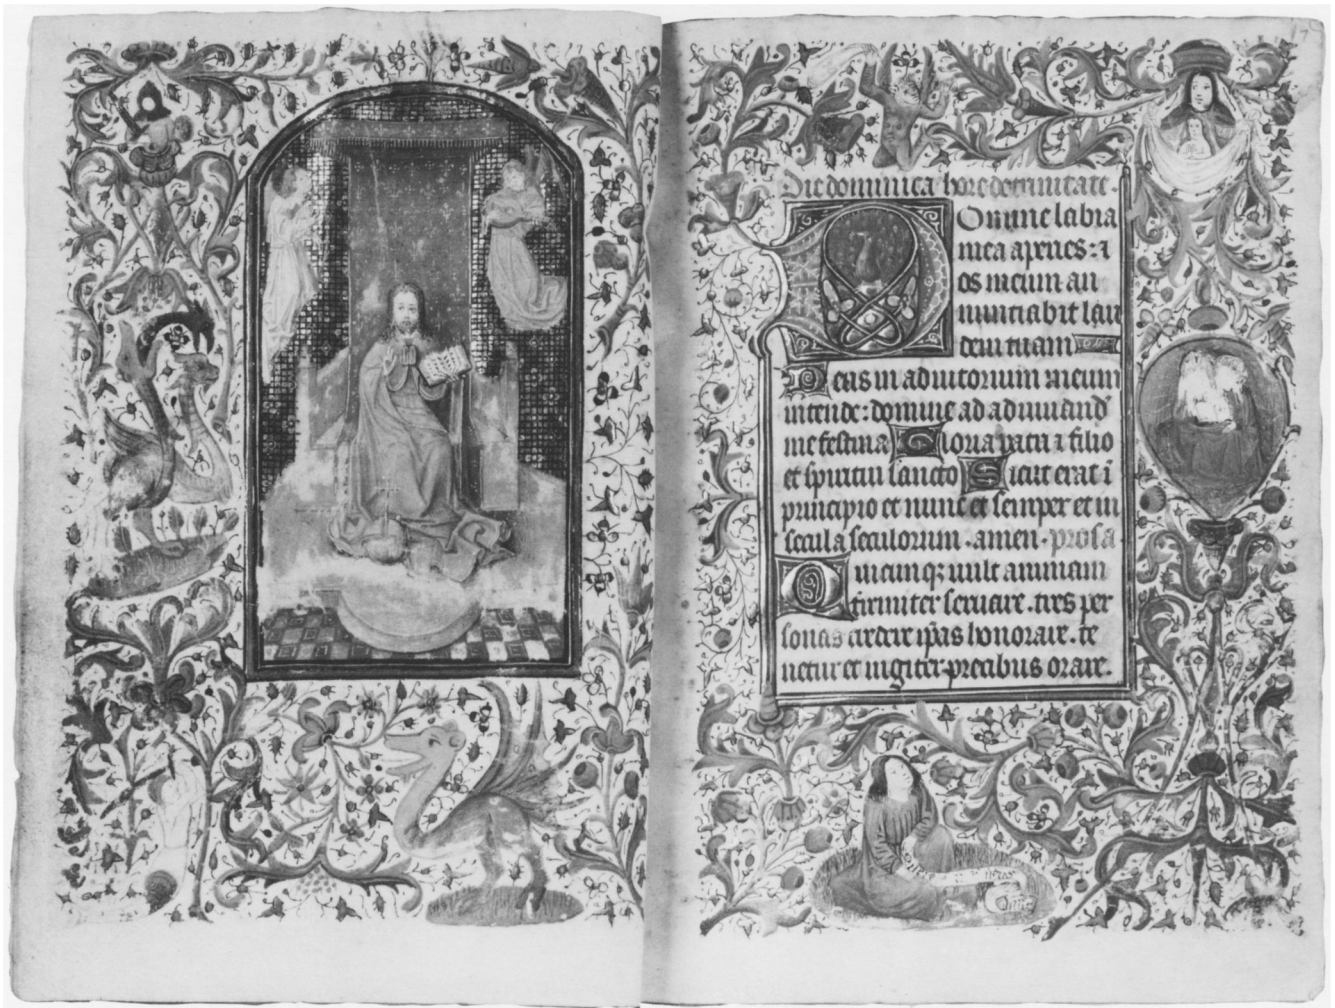 17
Die dominica hore de trinitate.
Domine labia
mea aperies: ⁊
os meum an
nunciabit lau
dem tuam
Deus in adiutorium meum
intende: domine ad adiuuand
me festina Gloria patri ⁊ filio
et spiritui sancto Sicut erat ī
principio et nunc et semper et in
secula seculorum. amen. prosa
Quicunqꝫ uult animam
firmiter seruare. tres per
sonas credere ip̄as honorare. te
netur et iugiter precibus orare.